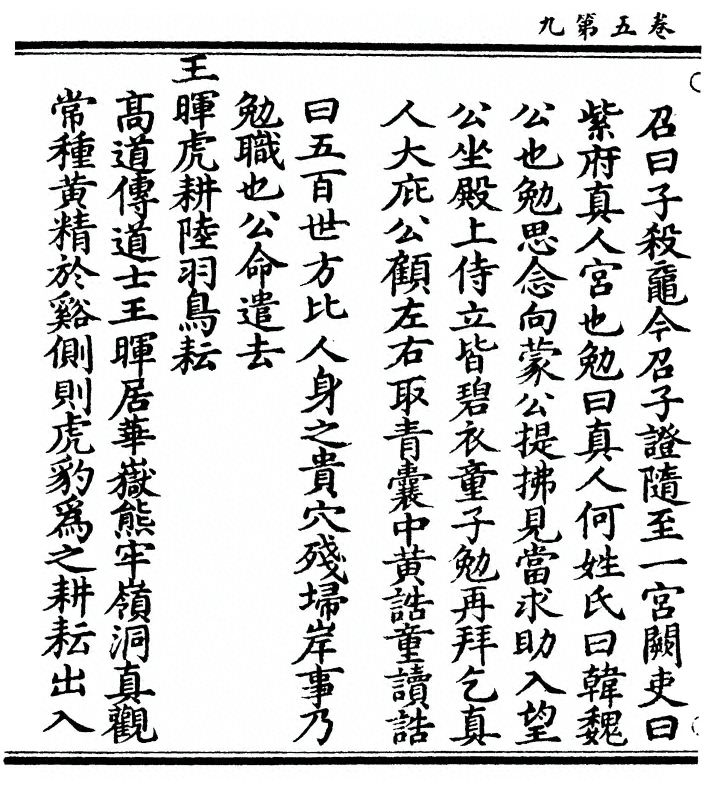 卷五第九
召曰子殺黿今召子證隨至一宮闕吏曰
紫府真人宮也勉曰真人何姓氏曰韓魏
公也勉思念向蒙公提拂見當求助入望
公坐殿上侍立皆碧衣童子勉再拜乞真
人大庇公顧左右取青囊中黃誥童讀誥
曰五百世方比人身之貴穴殘埽岸事乃
勉職也公命遣去
王暉虎耕陸羽鳥耘
髙道傳道士王暉居華嶽熊牢嶺洞真觀
常種黃精於谿側則虎豹爲之耕耘出入